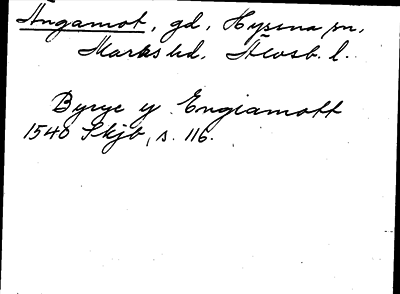 Ängamot, gd, Hyssna sn,
Marks hd. Älvsb. l.
Byrye y Engiamott
1540 Skjb, s. 116.